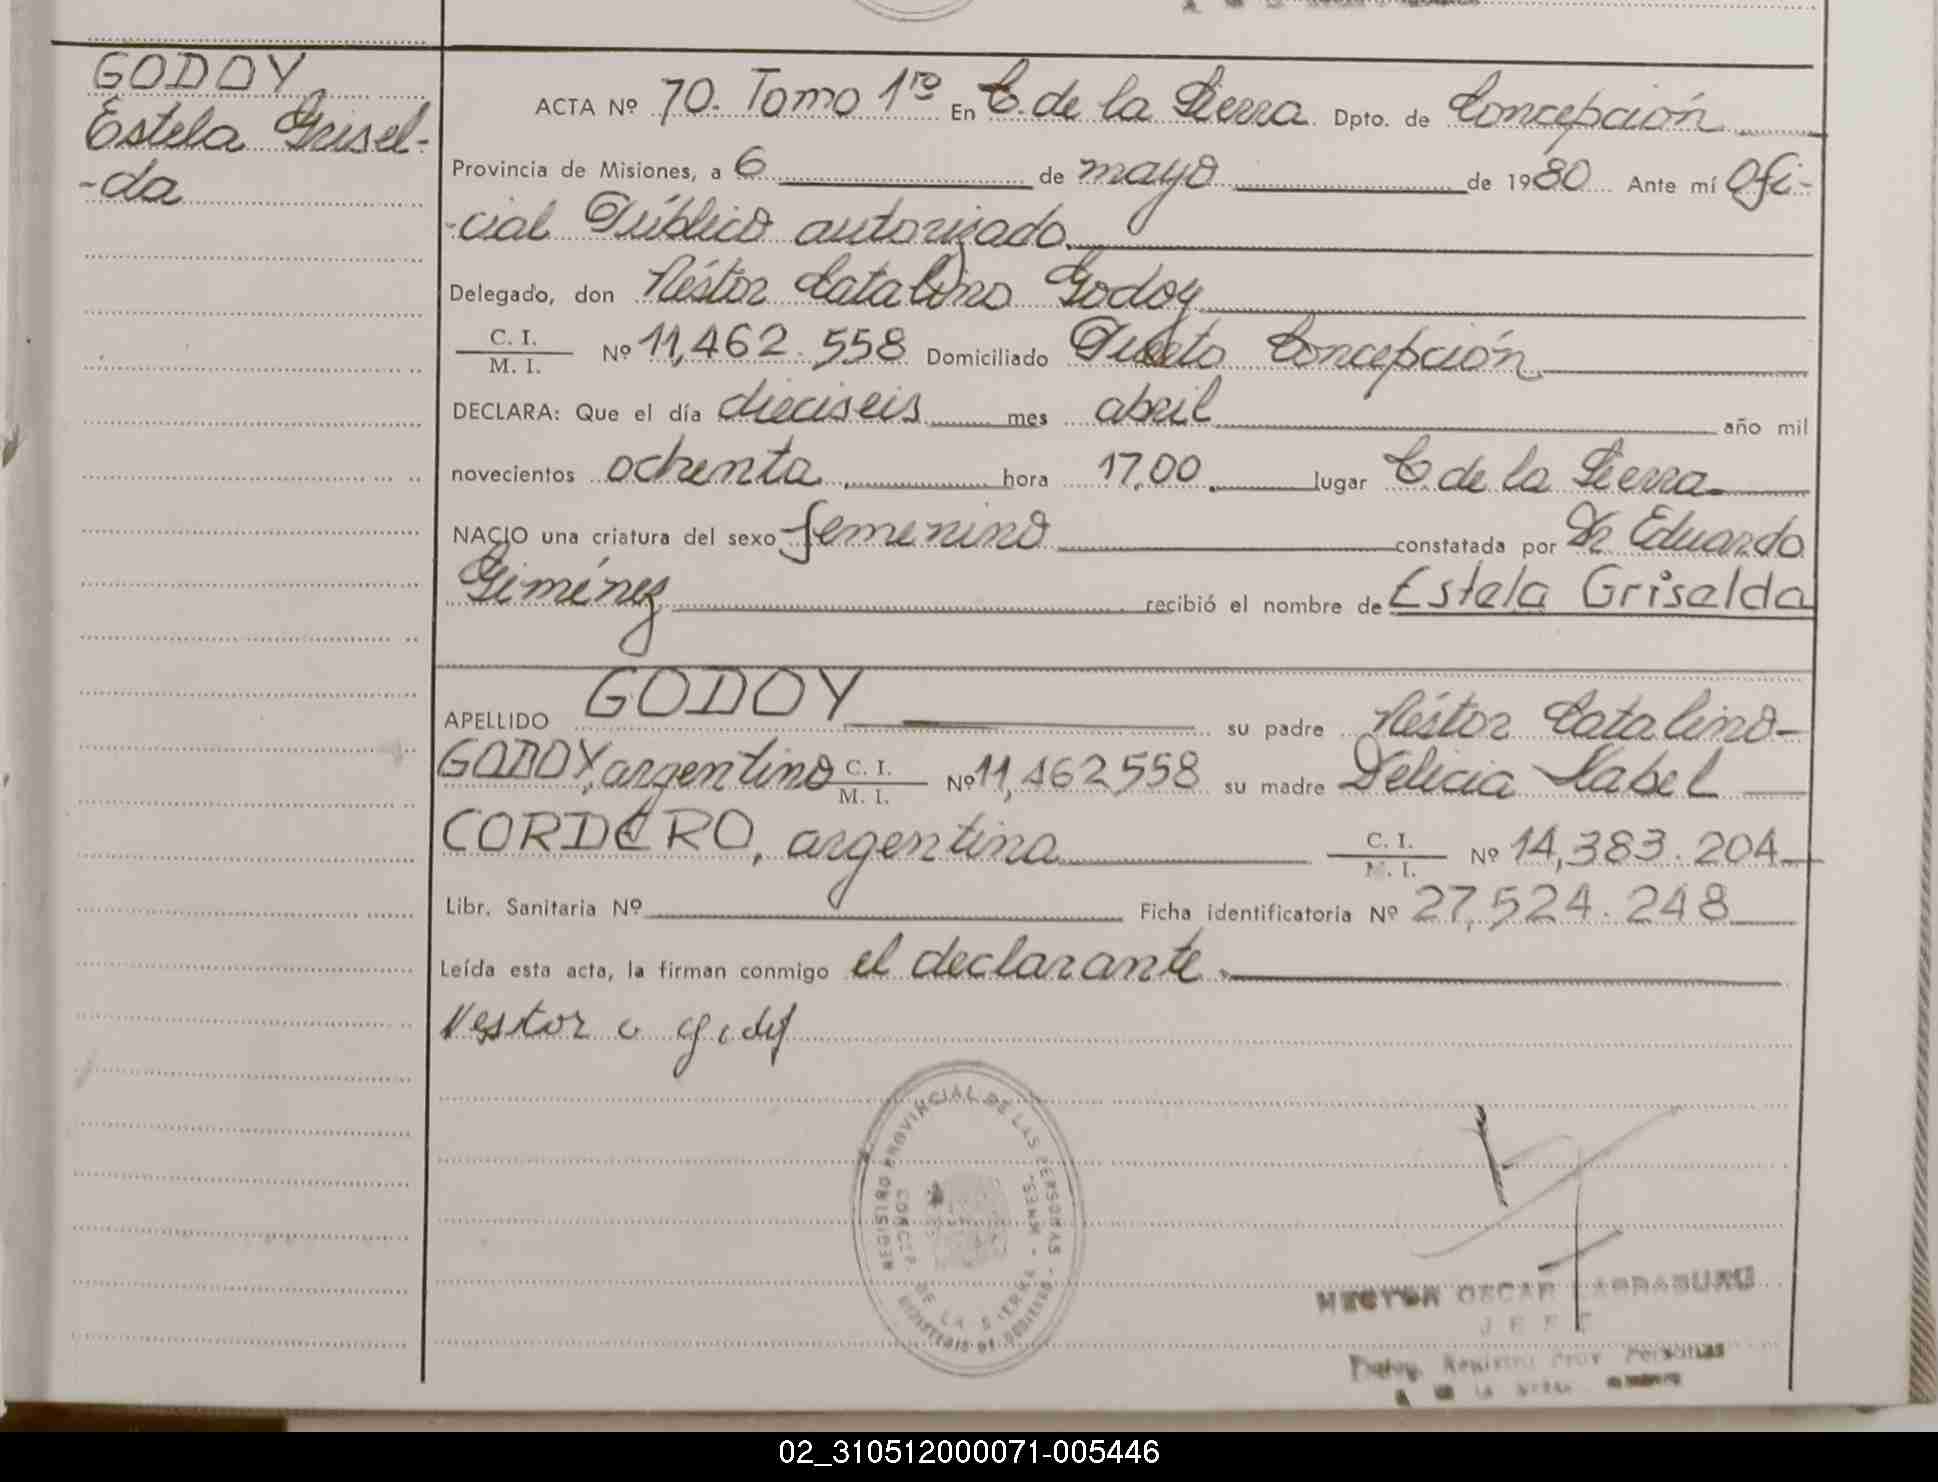 GODOY
Estela Grisel-
-da
ACTA Nº 70. Tomo 1ro En C. de la Sierra Dpto. de Concepción
Provincia de Misiones, a 6 de mayo de 1980 Ante mí Ofi-
-cial Público autorizado
Delegado, don Néstor Catalino Godoy
C. I.
M. I. Nº 11,462.558 Domiciliado Pueblo Concepción
DECLARA: Que el día dieciseis mes abril año mil
novecientos ochenta hora 17,00 lugar C de la Sierra
NACIO una criatura del sexo femenino constatada por Dr Eduardo
Giménez recibió el nombre de Estela Griselda
APELLIDO GODOY su padre Néstor Catalino-
GODOY, argentino C. I. M. I. Nº 11,462558 su madre Delicia Mabel
CORDERO, argentina C. I. M. I. Nº 14,383.204
Libr. Sanitaria Nº Ficha identificatoria Nº 27,524.248
Leída esta acta, la firman conmigo el declarante
Nestor c godoy
REGISTRO PROVINCIAL DE LAS PERSONAS
DE LA SIERRA - MNES.
HECTOR OSCAR
JEFE
Registro Prov Personas
02_310512000071-005446